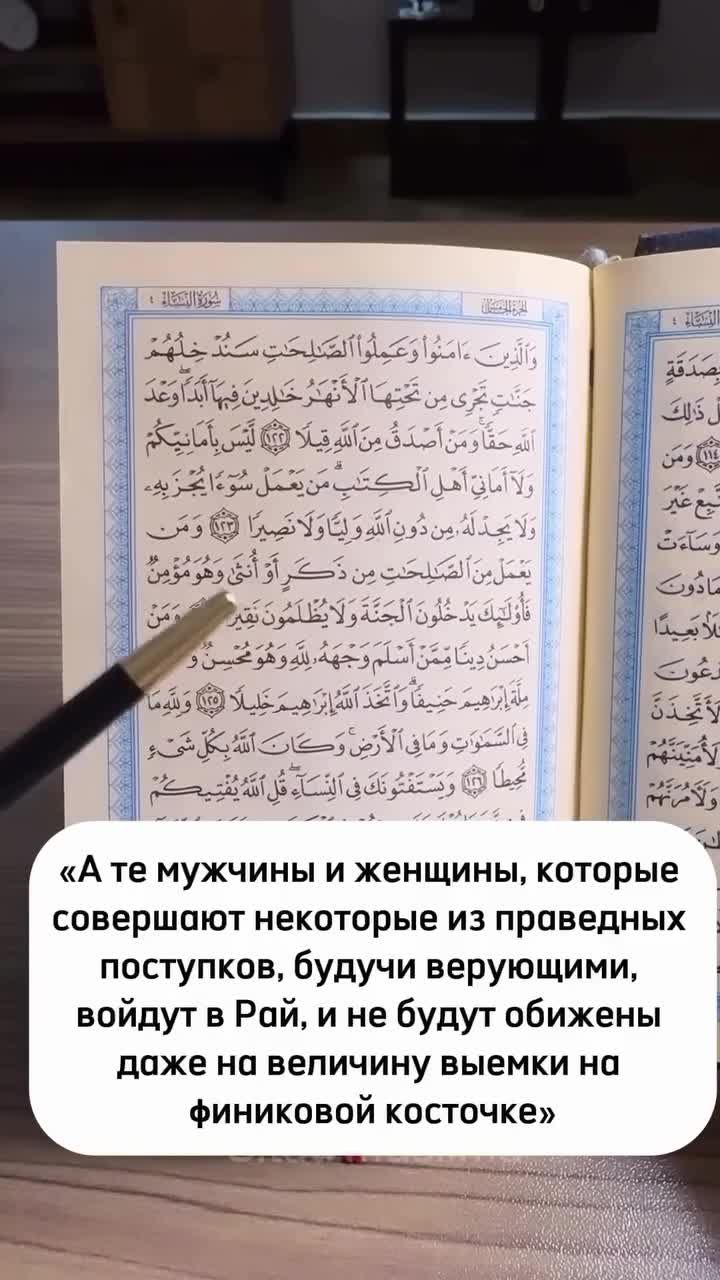 سُورَةُ النِّسَاءِ ٤
الجزء الخامس
وَالَّذِينَ ءَامَنُوا۟ وَعَمِلُوا۟ الصَّـٰلِحَـٰتِ سَنُدْخِلُهُمْ
جَنَّـٰتٍ تَجْرِى مِن تَحْتِهَا الْأَنْهَـٰرُ خَـٰلِدِينَ فِيهَآ أَبَدًا ۖ وَعْدَ
اللَّهِ حَقًّا ۚ وَمَنْ أَصْدَقُ مِنَ اللَّهِ قِيلًا ١٢٢ لَّيْسَ بِأَمَانِيِّكُمْ
وَلَآ أَمَانِىِّ أَهْلِ الْكِتَـٰبِ ۗ مَن يَعْمَلْ سُوٓءًا يُجْزَ بِهِۦ
وَلَا يَجِدْ لَهُۥ مِن دُونِ اللَّهِ وَلِيًّا وَلَا نَصِيرًا ١٢٣ وَمَن
يَعْمَلْ مِنَ الصَّـٰلِحَـٰتِ مِن ذَكَرٍ أَوْ أُنثَىٰ وَهُوَ مُؤْمِنٌ
فَأُو۟لَـٰٓئِكَ يَدْخُلُونَ الْجَنَّةَ وَلَا يُظْلَمُونَ نَقِيرًا وَمَنْ
أَحْسَنُ دِينًا مِّمَّنْ أَسْلَمَ وَجْهَهُۥ لِلَّهِ وَهُوَ مُحْسِنٌ
مِلَّةَ إِبْرَٰهِيمَ حَنِيفًا ۗ وَاتَّخَذَ اللَّهُ إِبْرَٰهِيمَ خَلِيلًا ١٢٥ وَلِلَّهِ مَا
فِى السَّمَـٰوَٰتِ وَمَا فِى الْأَرْضِ ۚ وَكَانَ اللَّهُ بِكُلِّ شَىْءٍ
مُّحِيطًا ١٢٦ وَيَسْتَفْتُونَكَ فِى النِّسَآءِ ۖ قُلِ اللَّهُ يُفْتِيكُمْ
«А те мужчины и женщины, которые
совершают некоторые из праведных
поступков, будучи верующими,
войдут в Рай, и не будут обижены
даже на величину выемки на
финиковой косточке»